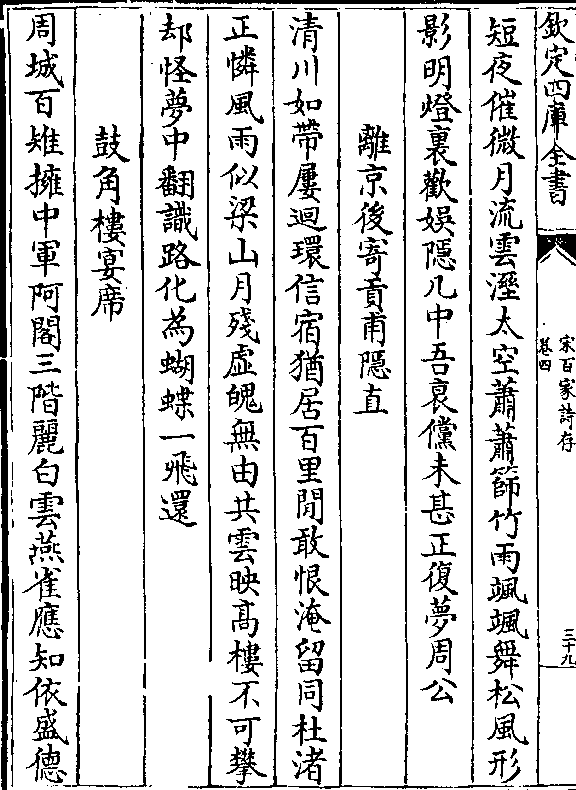 欽定四庫全書
宋百家詩存
卷四
三十九
短夜催微月流雲溼太空蕭蕭篩竹雨颯颯舞松風形
影明燈裏歡娛隱几中吾衰儻未甚正復夢周公
離京後寄貢甫隱直
清川如帶屢迴環信宿猶居百里間敢恨淹留同杜渚
正憐風雨似梁山月殘虛魄無由共雲映高樓不可攀
却怪夢中翻識路化為蝴蝶一飛還
鼓角樓宴席
周城百雉擁中軍阿閣三階麗白雲燕雀應知依盛德